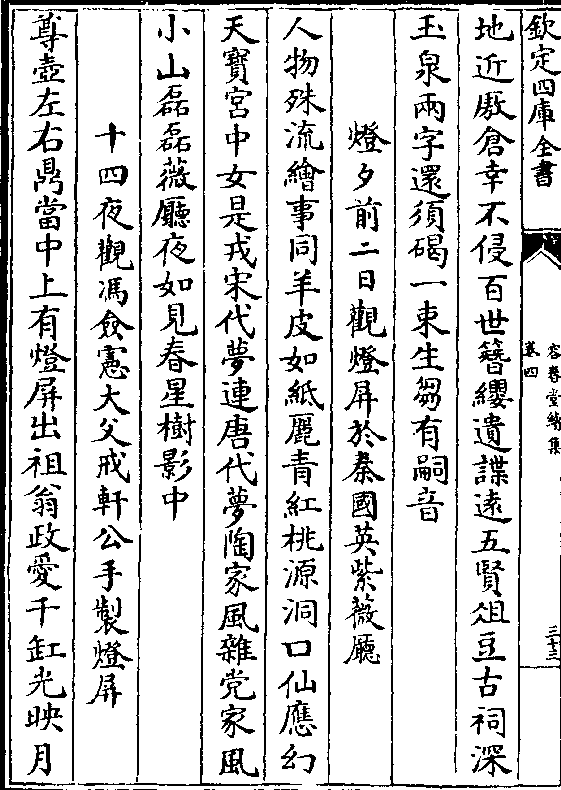 欽定四庫全書
容春堂續集
卷四
三十三
地近厫倉幸不侵百世簪纓遺諜遠五賢俎豆古祠深
玉泉兩字還須碣一束生芻有嗣音
燈夕前二日觀燈屏於秦國英紫薇廳
人物殊流繪事同羊皮如紙麗青紅桃源洞口仙應幻
天寶宮中女是戎宋代夢連唐代夢陶家風雜党家風
小山磊磊薇廳夜如見春星樹影中
十四夜觀馮僉憲大父戒軒公手製燈屏
尊壺左右鼎當中上有燈屏出祖翁政愛千缸光映月